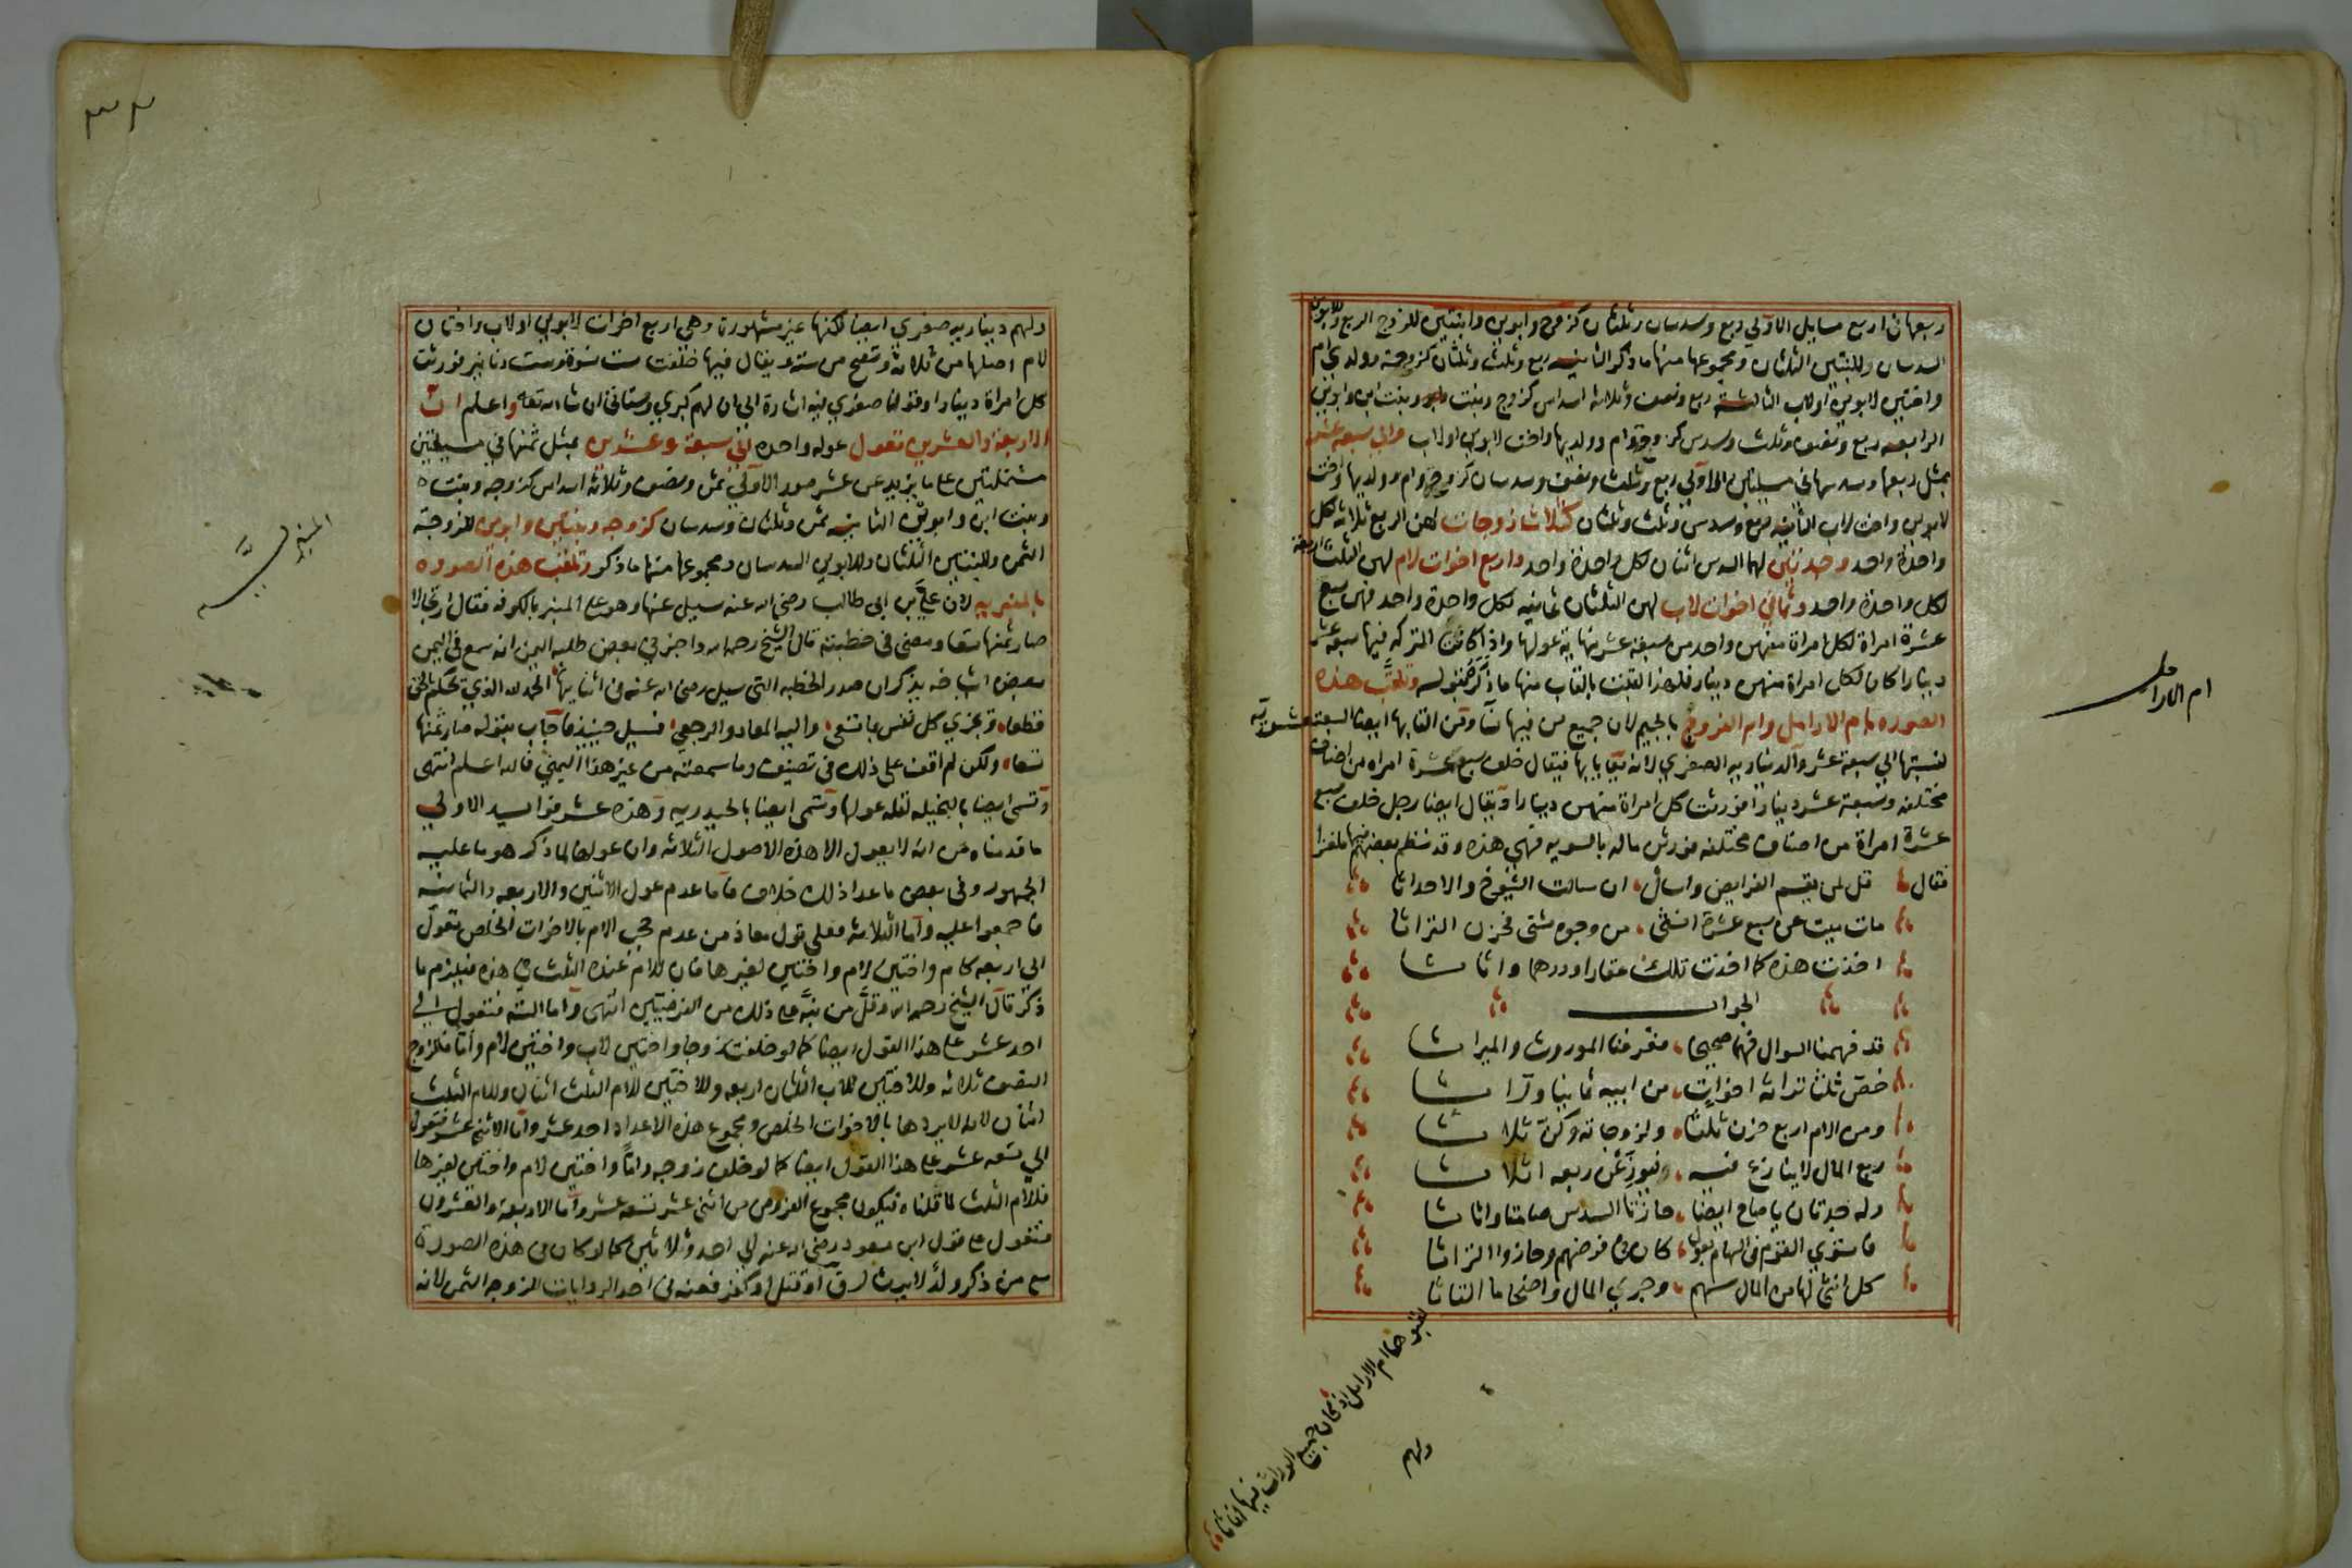 ربعها في اربع مسايل الاولي ربع وسدسان وثلثان كزوج وابوين وابنتين للزوج الربع وللابوين
السدسان وللبنتين الثلثان ومجموعها منها ما ذكر الثانيه ربع وثلث وثلثان كزوجة وولدي ام
واختين لابوين او لاب الثالثة ربع ونصف وثلاثة اسداس كزوج وبنت وبنت ابن وابوين
الرابعه ربع ونصف وثلث وسدس كزوجة وام وولديها واخت لابوين او لاب والي سبعة عشر
بمثل ربعها وسدسها في مسيلتين الاولي ربع وثلث ونصف وسدسان كزوجة وام وولديها واخت
لابوين واخت لاب الثانيه ربع وسدس وثلث وثلثان كثلاث زوجات لهن الربع ثلاثة لكل
واحدة واحد وجدتين لهما السدس اثنان لكل واحدة واحد واربع اخوات لام لهن الثلث اربعة
لكل واحدة واحد وثماني اخوات لاب لهن الثلثان ثمانيه لكل واحدة واحد فهن سبع
عشرة امراة لكل امراة منهن واحد من سبعة عشر نهاية عولها واذا كانت التركه فيها سبعة عشر
دينارا كان لكل امراة منهن دينار فلهذا لقبت بالقاب منها ما ذكر بقوله وتلقب هذه
الصوره بام الارامل وام الفروج بالجيم لان جميع من فيها اناث ومن القابها ايضا السبعة عشرية
لنسبتها الي سبعة عشر والدينارية الصغري لانه يعايا بها فيقال خلف سبع عشرة امراه من اصناف
مختلفه وسبعة عشر دينارا فورثت كل امراة منهن دينارا ويقال ايضا رجل خلف سبع
عشرة امراة من اصناف مختلفه فورثن ماله بالسويه فهي هذه وقد نظم بعضهم فيها ملغزا
فقال قل لمن يقسم الفرايض واسأل ان سالت الشيوخ والاحداثا
مات ميت عن سبع عشرة انثى من وجوه شتى فحزن التراثا
اخذت هذه كما اخذت تلك عقارا ودرهما واثاثا
الجواب
قد فهمنا السوال فهما صحيحا فعرفنا الموروث والميراثا
خص ثلثا تراثه اخوات من ابيه ثمانيا وراثا
ومن الام اربع حزن ثلثا ولزوجاته وكن ثلاثا
ربع المال لا ينازع فيه فيوزعن ربعه اثلاثا
وله جدتان يا صاح ايضا حازتا السدس صامتا واثاثا
فاستوي القوم في السهام بعول كان في فرضهم وحازوا التراثا
كل انثى لها من المال سهم وجري المال واضحا ما التاثا
لقبوها ام الارامل اذ كان جميع الوراث فيها اناثا
ولهم
ام الارامل
٣٣
ولهم دينارية صغري ايضا لكنها غير مشهورة وهي اربع اخوات لابوين او لاب واختان
لام اصلها من ثلاثة وتصح من ستة ويقال فيها خلفت ست نسوة وست دنانير فورثت
كل امراة دينارا وقولنا صغري فيه اشارة الي ان لهم كبري وستاتي ان شا الله تعا واعلم ان
الاربعة والعشرين تعول عوله واحده الي سبعة وعشرين بمثل ثمنها في مسيلتين
مشتملتين علي ما يزيد عن عشر صور الاولي ثمن ونصف وثلاثة اسداس كزوجه وبنت
وبنت ابن وابوين الثانيه ثمن وثلثان وسدسان كزوجه وبنتين وابوين للزوجة
الثمن وللبنتين الثلثان وللابوين السدسان ومجموعها منها ما ذكر وتلقب هذه الصوره
بالمنبريه لان علي بن ابي طالب رضي الله عنه سيل عنها وهو علي المنبر بالكوفه فقال ارتجالا
صار ثمنها تسعا ومضى في خطبته قال الشيخ رحمه الله واخبرني بعض طلبه اليمن انه سمع في اليمن
بعض اشياخه يذكر ان صدر الخطبه التي سيل رضي الله عنه في اثنايها الحمد لله الذي يحكم بالحق
قطعا ويجزي كل نفس بما تسعى واليه المعاد والرجعى فسيل حينيذ فاجاب بقوله صار ثمنها
تسعا ولكن لم اقف على ذلك في تصنيف وما سمعته من غير هذا اليمني فالله اعلم انتهى
وتسمى ايضا بالبخيله لقله عولها وتسمى ايضا بالحيدريه وهذه عشر فوايد الاولي
ما قدمناه من انه لا يعول الا هذه الاصول الثلاثه وان عولها لما ذكر هو ما عليه
الجمهور وفي بعض ما عدا ذلك خلاف فاما عدم عول الاثنين والاربعه والثمانيه
فاجمعوا عليه واما الثلاثه فعلي قول معاذ من عدم حجب الام بالاخوات الخلص تعول
الي اربعه كام واختين لام واختين لغيرها فان للام عنده الثلث في هذه فيلزم ما
ذكر قال الشيخ رحمه الله وقل من نبه علي ذلك من الفرضيين انتهى واما الستة فتعول الي
احد عشر علي هذا القول ايضا كما لو خلفت زوجا واختين لاب واختين لام واما فللزوج
النصف ثلاثه وللاختين للاب الثلثان اربعه وللاختين للام الثلث اثنان وللام الثلث
اثنان لانه لا يردها بالاخوات الخلص ومجموع هذه الاعداد احد عشر واما الاثني عشر فتعول
الي تسعه عشر علي هذا القول ايضا كما لو خلف زوجه واما واختين لام واختين لغيرها
فللام الثلث لما قلناه فيكون مجموع الفروض من اثني عشر تسعه عشر واما الاربعة والعشرون
فتعول علي قول ابن مسعود رضي الله عنه الي احد وثلاثين كما لو كان في هذه الصورة
مع من ذكر ولد لا يرث لرق او قتل او كفر فعنه في احد الروايات للزوجه الثمن لانه
المنبريه